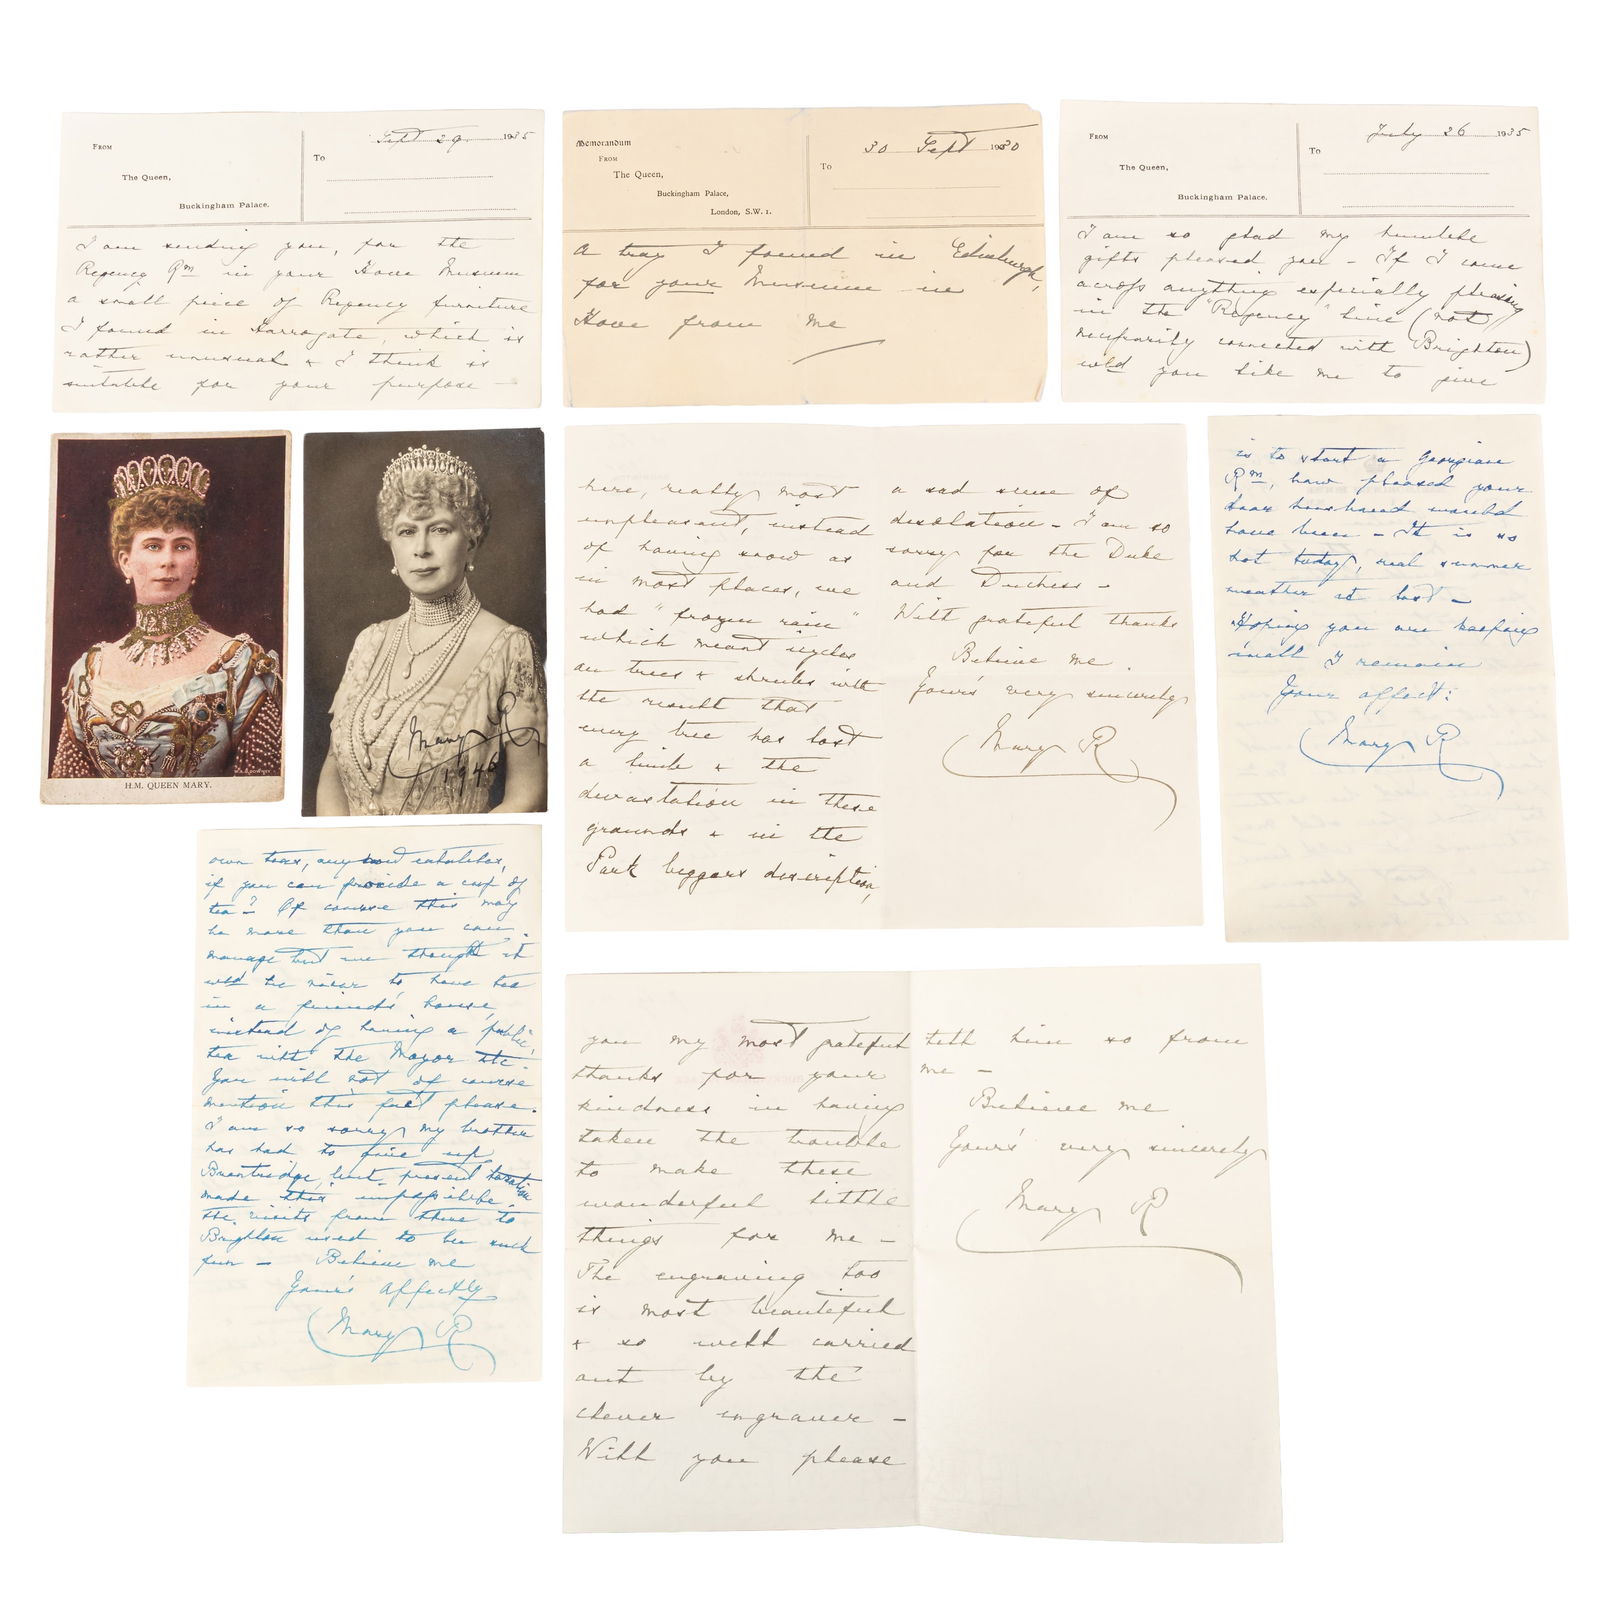 From
The Queen,
Buckingham Palace.
To
Sept 29. 1935
I am sending you, for the
Regency Rm in your Hove Museum
a small piece of Regency furniture
I found in Harrogate, which is
rather unusual & I think is
suitable for your purpose —
Memorandum
From
The Queen,
Buckingham Palace,
London, S.W. 1.
To
30 Sept 1930
A tray I found in Edinburgh,
for your Museum in
Hove from me
From
The Queen,
Buckingham Palace.
To
July 26 1935
I am so glad my humble
gifts pleased you — If I come
across anything especially pleasing
in the "Regency" line (not
necessarily connected with Brighton)
wld you like me to give
H.M. QUEEN MARY.
Mary R
1946
here, really most
unpleasant, instead
of having snow as
in most places, we
had "frozen rain"
which meant icycles
on trees & shrubs with
the result that
every tree has lost
a limb & the
devastation in these
grounds & in the
Park beggars description,
a sad sense of
desolation — I am so
sorry for the Duke
and Duchess —
With grateful thanks
Believe me
Your's very sincerely
Mary R
is to start a Georgian
Rm, how pleased your
dear husband would
have been — It is so
hot today, real summer
weather at last —
Hoping you are keeping
well I remain
Your affect:
Mary R
own teas, any eatables,
if you can provide a cup of
tea? Of course this may
be more than you can
manage but we thought it
wld be nicer to have tea
in a friend's house,
instead of having a 'public'
tea with the Mayor etc.
You will not of course
mention this fact please.
I am so sorry my brother
has had to give up
Brantridge, but present taxation
made this impossible
the visits from there to
Brighton used to be such
fun — Believe me
Your's affectly
Mary R
you my most grateful
thanks for your
kindness in having
taken the trouble
to make these
wonderful little
things for me —
The engraving too
is most beautiful
& so well carried
out by the
clever engraver —
Will you please
tell him so from
me —
Believe me
Your's very sincerely
Mary R